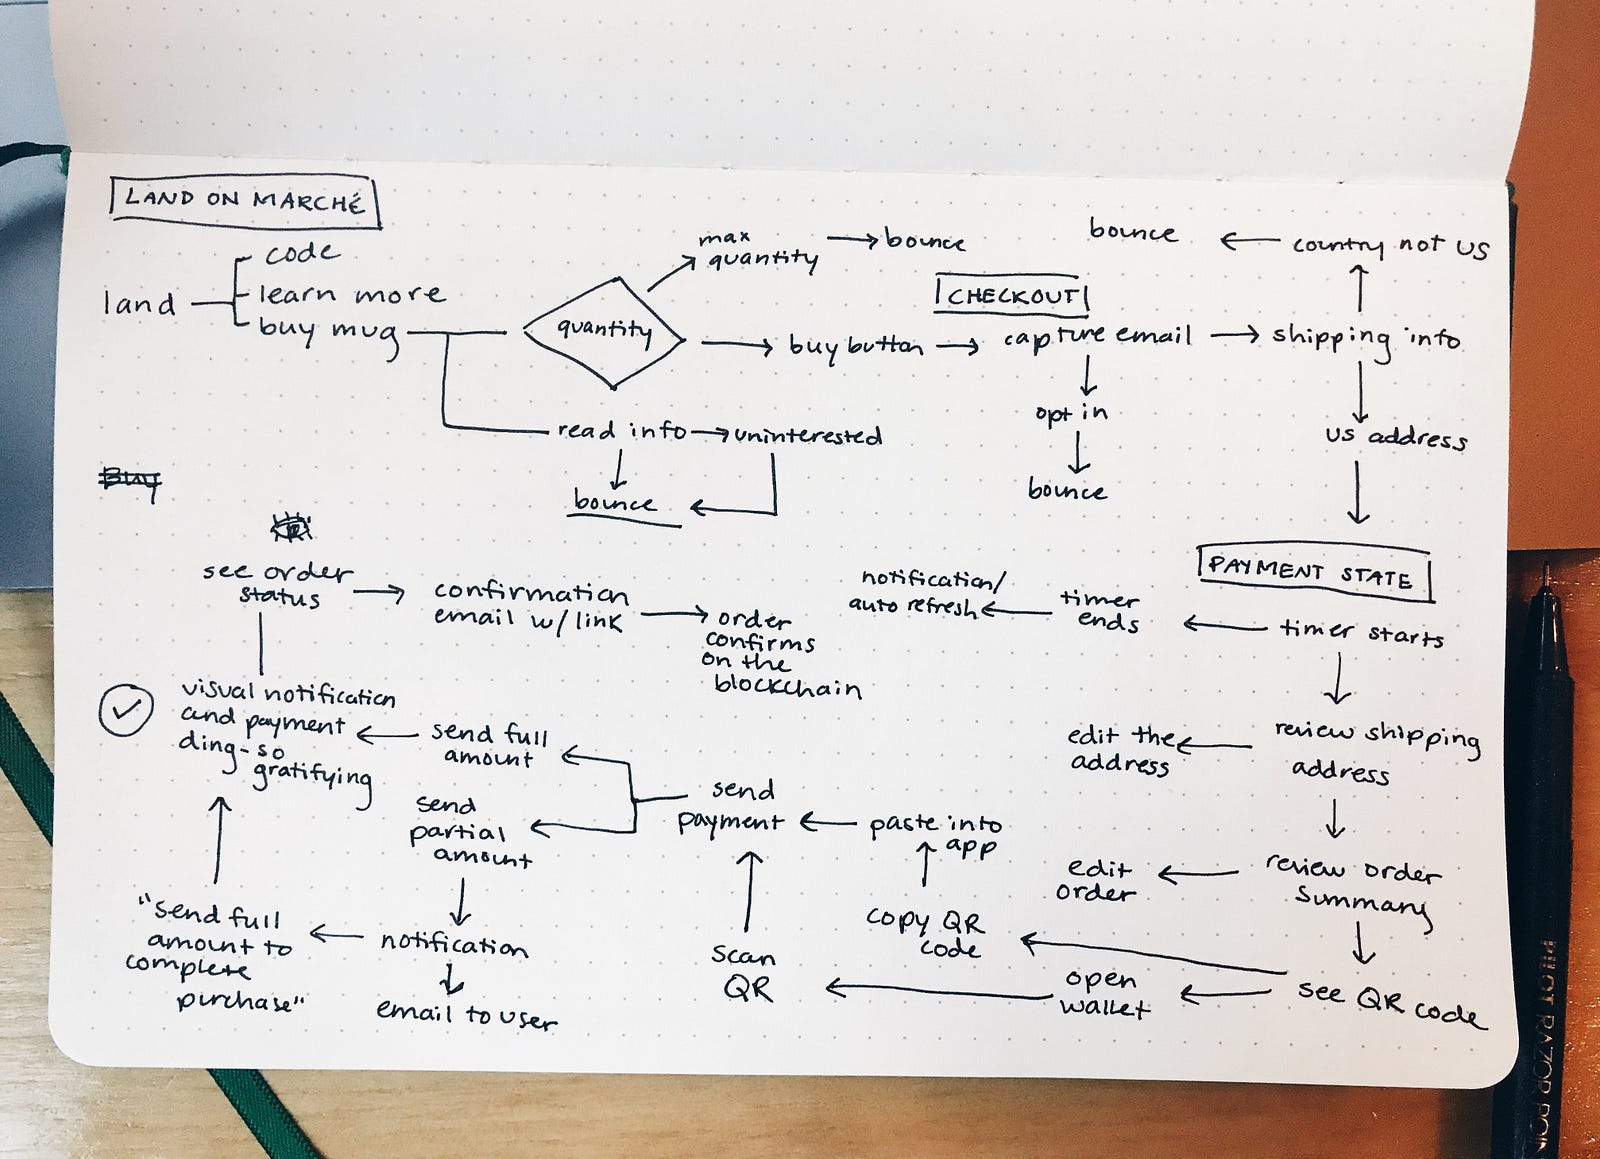 LAND ON MARCHÉ
land
code
learn more
buy mug
quantity
max
quantity
bounce
buy button
read info
uninterested
bounce
CHECKOUT
capture email
opt in
bounce
shipping info
country not US
bounce
US address
Buy
PAYMENT STATE
timer starts
timer
ends
notification/
auto refresh
review shipping
address
edit the
address
review order
summary
edit
order
see QR code
copy QR
code
paste into
app
open
wallet
scan
QR
send
payment
send full
amount
send
partial
amount
notification
email to user
"send full
amount to
complete
purchase"
visual notification
and payment
ding-so
gratifying
see order
status
confirmation
email w/link
order
confirms
on the
blockchain
PILOT RAZOR POIN